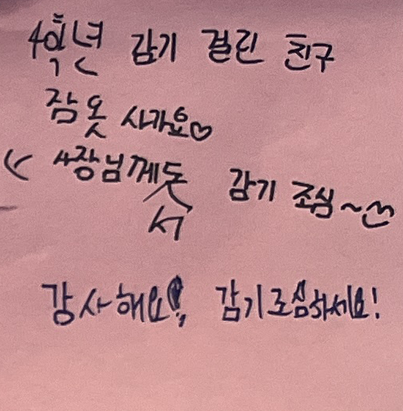 4학년 감기 걸린 친구
잠옷 사가요♡
사장님께도 감기 조심~
서
감사해요!, 감기조심하세요!